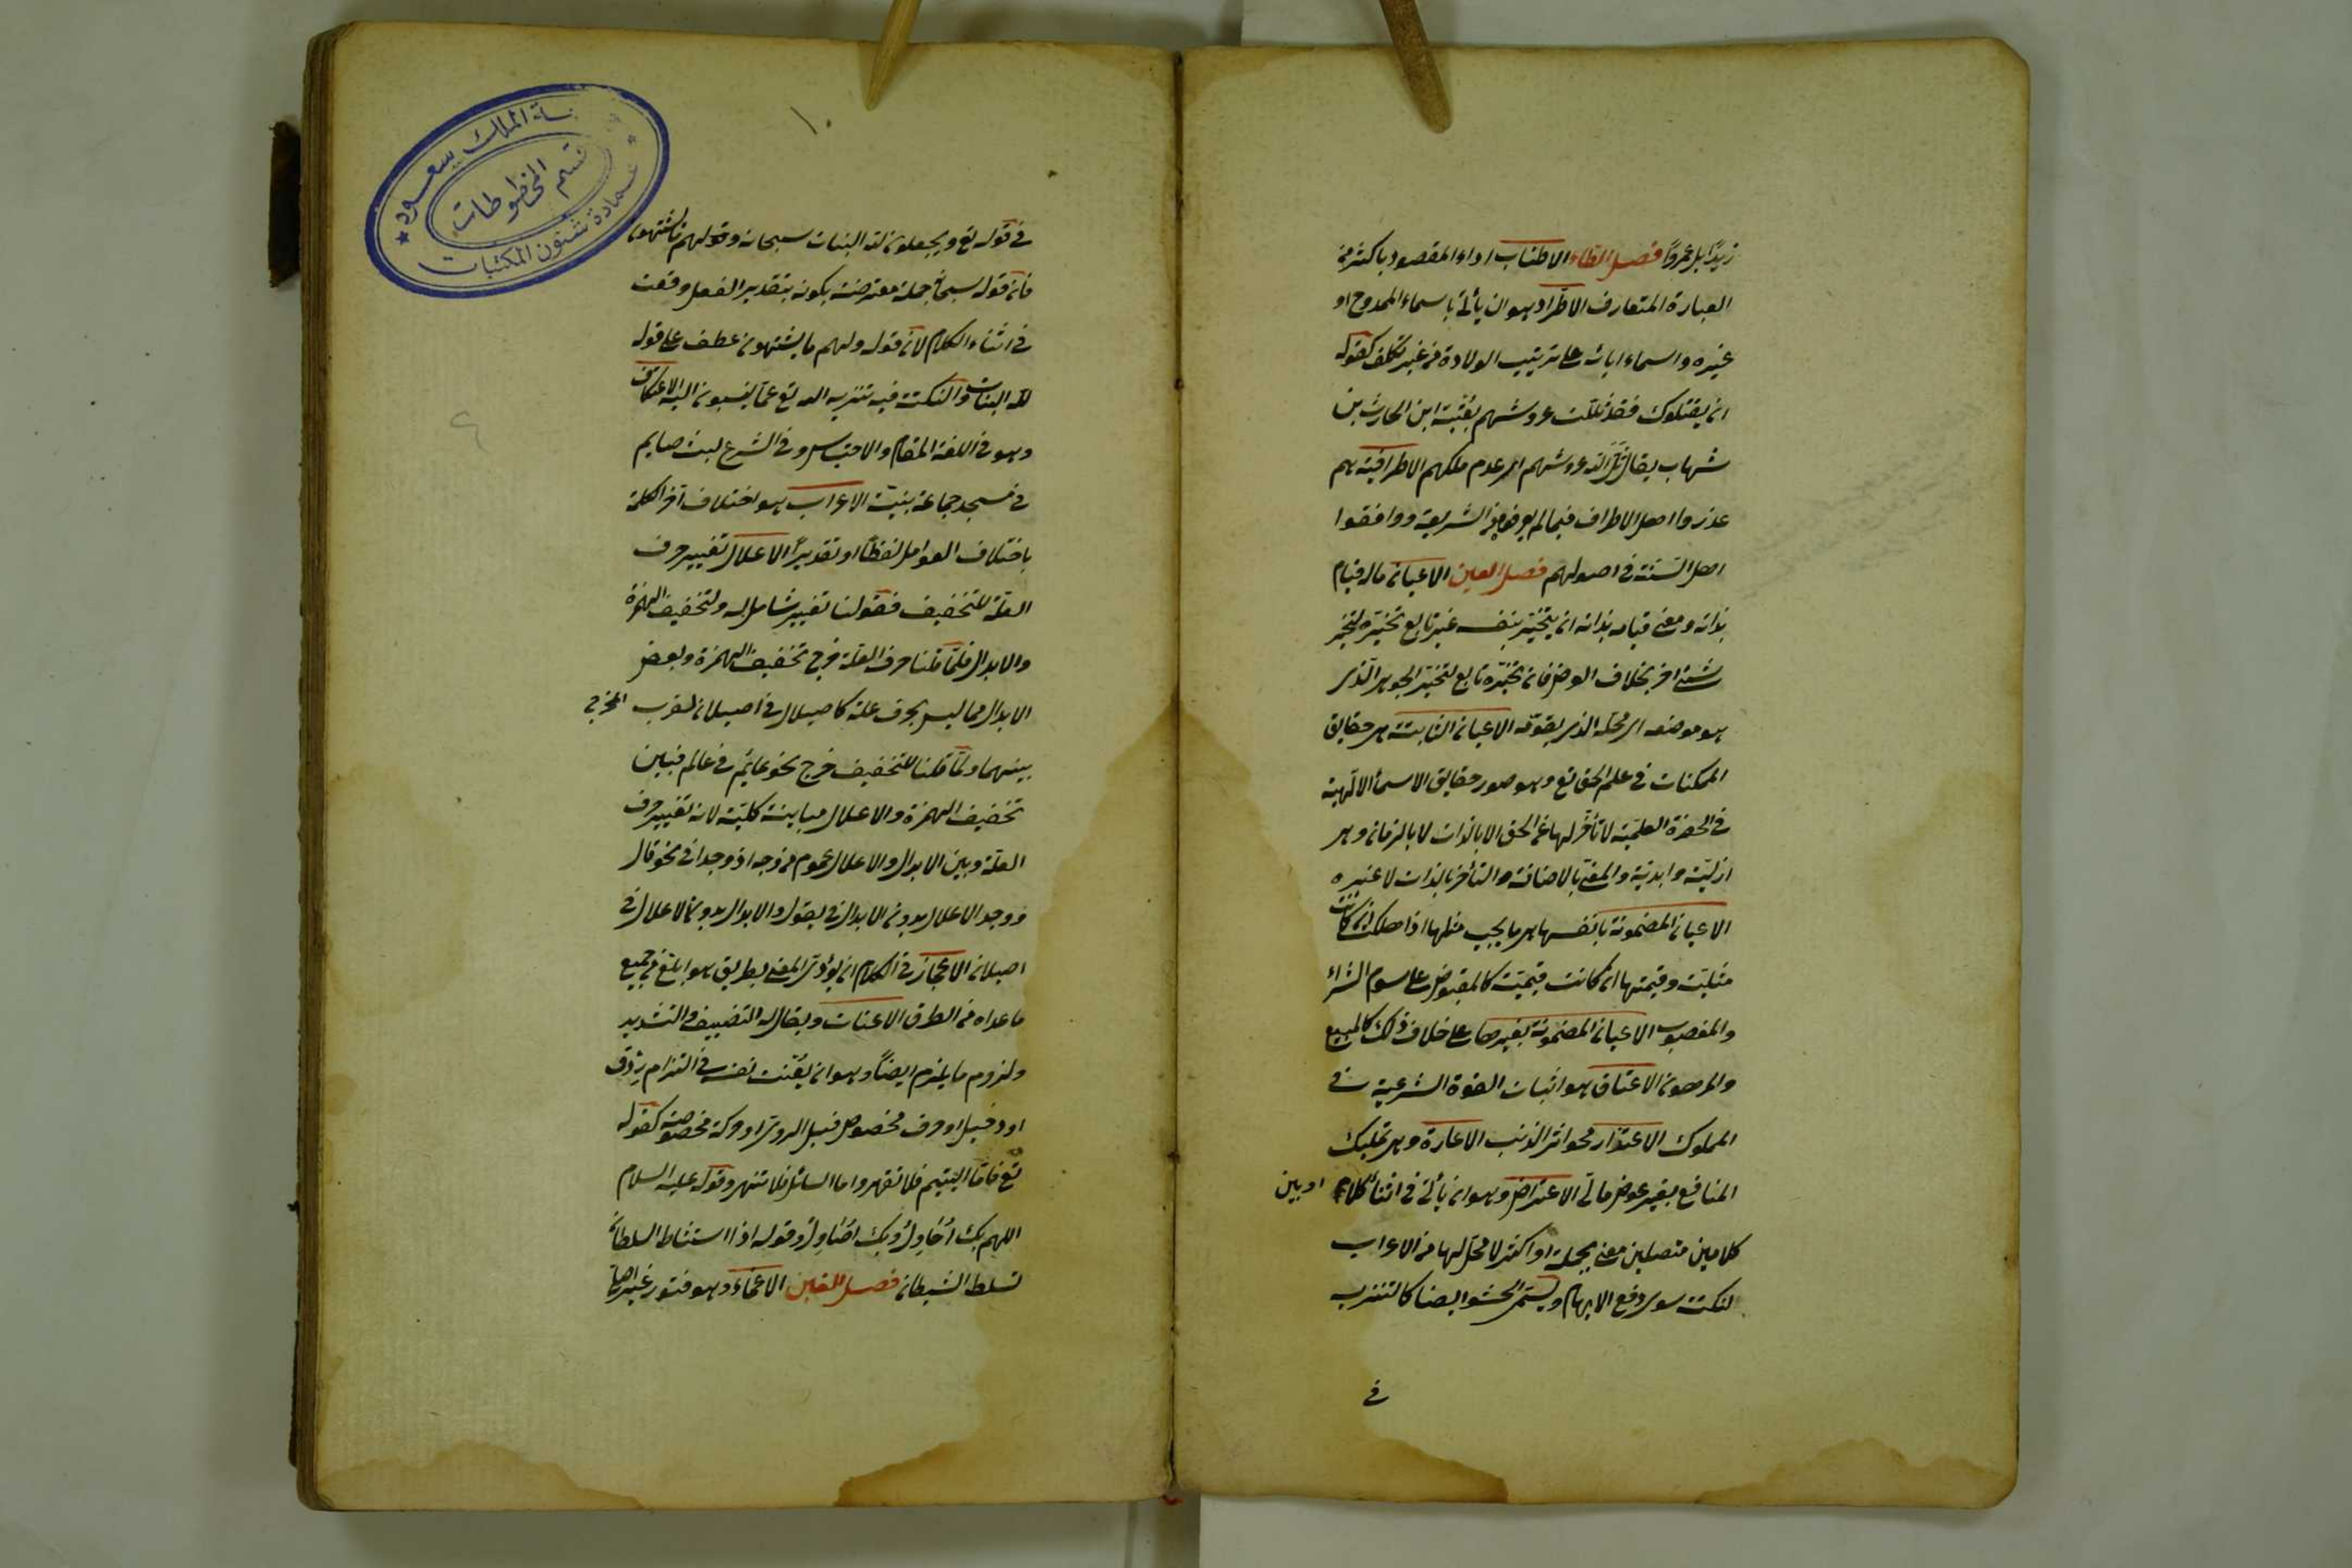 زيدا بل عمروا فصل الطاء الاطناب اداء المقصود باكثر من
العبارة المتعارف الاطراد وهو ان يأتى باسماء الممدوح او
غيره واسماء ابائه على ترتيب الولادة من غير تكلف كقوله
ان يقتلوك فقد ثللت عروشهم بعتيبة ابن الحارث بن
شهاب يقال ثل الله عروشهم اى هدم ملكهم الاطرافية هم
عذروا اهل الاطراف فيما لم يعرفوه من الشريعة ووافقوا
اهل السنة فى اصولهم فصل العين الاعيان ماله قيام
بذاته ومعنى قيامه بذاته ان يتحيز بنفسه غير تابع تحيزه لتحيز
شئ اخر بخلاف العرض فان تحيزه تابع لتحيز الجوهر الذى
هو موضعه اى محله الذى يقومه الاعيان الثابتة هى حقايق
الممكنات فى علم الحق تع وهو صور حقايق الاسماء الالهية
فى الحضرة العلمية لا تأخر لها عن الحق الا بالذات لا بالزمان وهى
ازلية وابدية والمعنى بالاضافة والتأخر بالذات لا غيره
الاعيان المضمونة بانفسها هى ما يجب مثلها اذا هلك ان كانت
مثلية وقيمتها ان كانت قيمية كالمقبوض على سوم الشراء
والمغصوب الاعيان المضمونة بغيرها على خلاف ذلك كالمبيع
والمرهون الاعتاق هو اثبات القوة الشرعية فى
المملوك الاعتذار محو اثر الذنب الاعارة وهى تمليك
المنافع بغير عوض مالى الاعتراض وهو ان يأتى فى اثناء كلام او بين
كلامين متصلين معنى بجملة او اكثر لا محل لها من الاعراب
لنكتة سوى دفع الايهام ويسمى الحشو ايضا كالتنزيه
فى
١٠
مكتبة الملك سعود
قسم المخطوطات
عمادة شئون المكتبات
فى قوله تع ويجعلون لله البنات سبحانه ولهم ما يشتهون
فان قوله سبحانه جملة معترضة بكونه بتقدير الفعل وقعت
فى اثناء الكلام لان قوله ولهم ما يشتهون عطف على قوله
لله البنات والنكتة فيه تنزيه الله تع عما ينسبون اليه الاعتكاف
وهو فى اللغة المقام والاحتباس وفى الشرع لبث صايم
فى مسجد جماعة بنية الاعراب هو اختلاف آخر الكلمة
باختلاف العوامل لفظا او تقديرا الاعلال تغيير حرف
العلة للتخفيف فقولنا تغيير شامل له ولتخفيف الهمزة
والابدال فلما قلنا حرف العلة خرج تخفيف الهمزة وبعض
الابدال مما ليس بحرف علة كاصيلال فى اصيلان لقرب المخرج
بينهما ولما قلنا للتخفيف خرج نحو عألم فى عالم فبين
تخفيف الهمزة والاعلال مباينة كلية لانه تغيير حرف
العلة وبين الابدال والاعلال عموم من وجه اذ وجدا فى نحو قال
ووجد الاعلال بدون الابدال فى يقول والابدال بدون الاعلال فى
اصيلان الاعجاز فى الكلام ان يؤدى المعنى بطريق هو ابلغ من جميع
ما عداه من الطرق الاعنات ويقال له التضييق والتشديد
ولزوم ما يلزم ايضا وهو ان يعنت نفسه فى التزام ردف
او دخيل او حرف مخصوص قبل الروى او حركة مخصوصة كقوله
تع فاما اليتيم فلا تقهر واما السائل فلا تنهر وقوله عليه السلام
اللهم بك احاول وبك اصاول وقوله اذا استشاط السلطان
تسلط الشيطان فصل الغين الاغماء وهو فتور غير اصلى